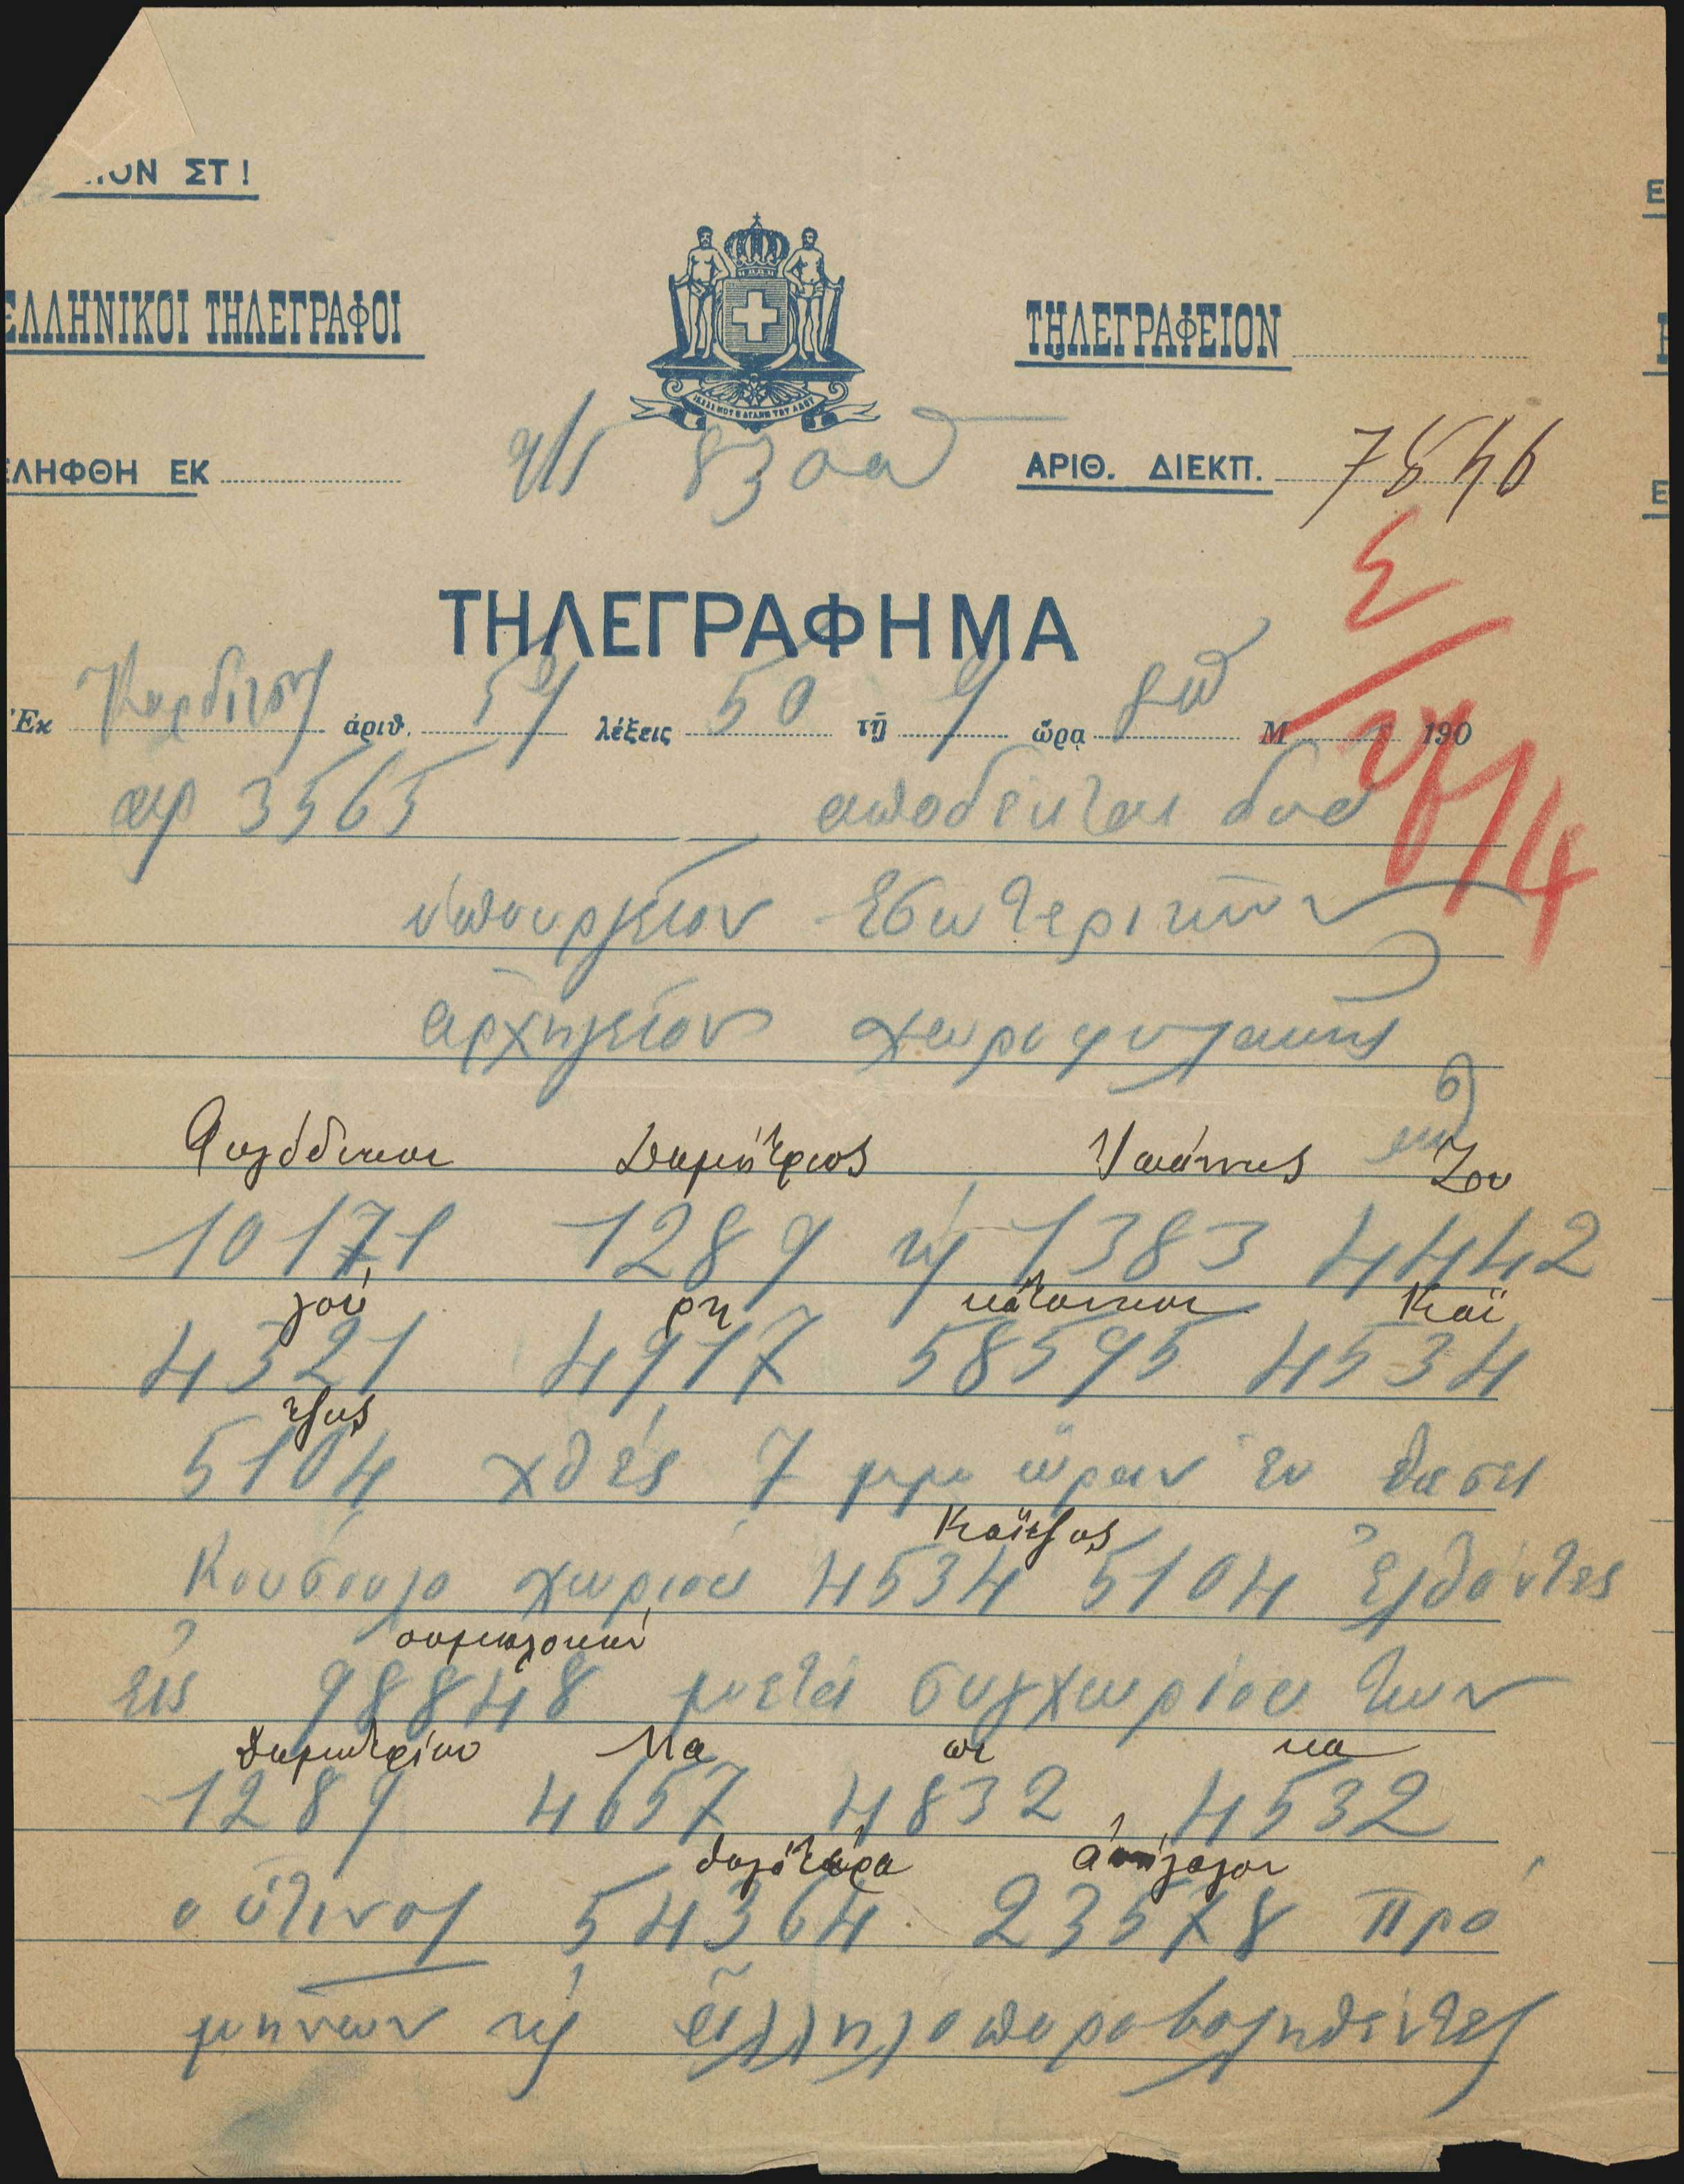 ΙΟΝ ΣΤ!
ΕΛΛΗΝΙΚΟΙ ΤΗΛΕΓΡΑΦΟΙ
ΤΗΛΕΓΡΑΦΕΙΟΝ
ΕΛΗΦΘΗ ΕΚ
ΑΡΙΘ. ΔΙΕΚΠ. 7846
ΤΗΛΕΓΡΑΦΗΜΑ
Ἐκ Καρδίτση ἀριθ. 59 λέξεις 50 τῇ 9 ὥρᾳ Μ 190
αρ 3565 αποδέκται δύο
ὑπουργεῖον Ἐσωτερικῶν
ἀρχηγεῖον χωροφυλακῆς
Φυγόδικοι Δημήτριος Ἰωάννης Ζου
10171 1289 ϗ 1383 4442
λού ρη κάτοικοι Καϊ
4321 4917 58595 4534
τζας
5104 χθές 7 μμ ὥραν ἐν θέσει
Καϊτζας
Κουσουλο χωρίου 4534 5104 ἐλθόντες
συμπλοκήν
εἰς 98848 μετά συγχωρίου των
Δημητρίου Μα ωι κα
1289 4657 4832 4532
θυγατέρα ἀπήγαγον
οὕτινος 54364 23578 πρό
μηνῶν ϗ ἀλληλοπυροβοληθέντες